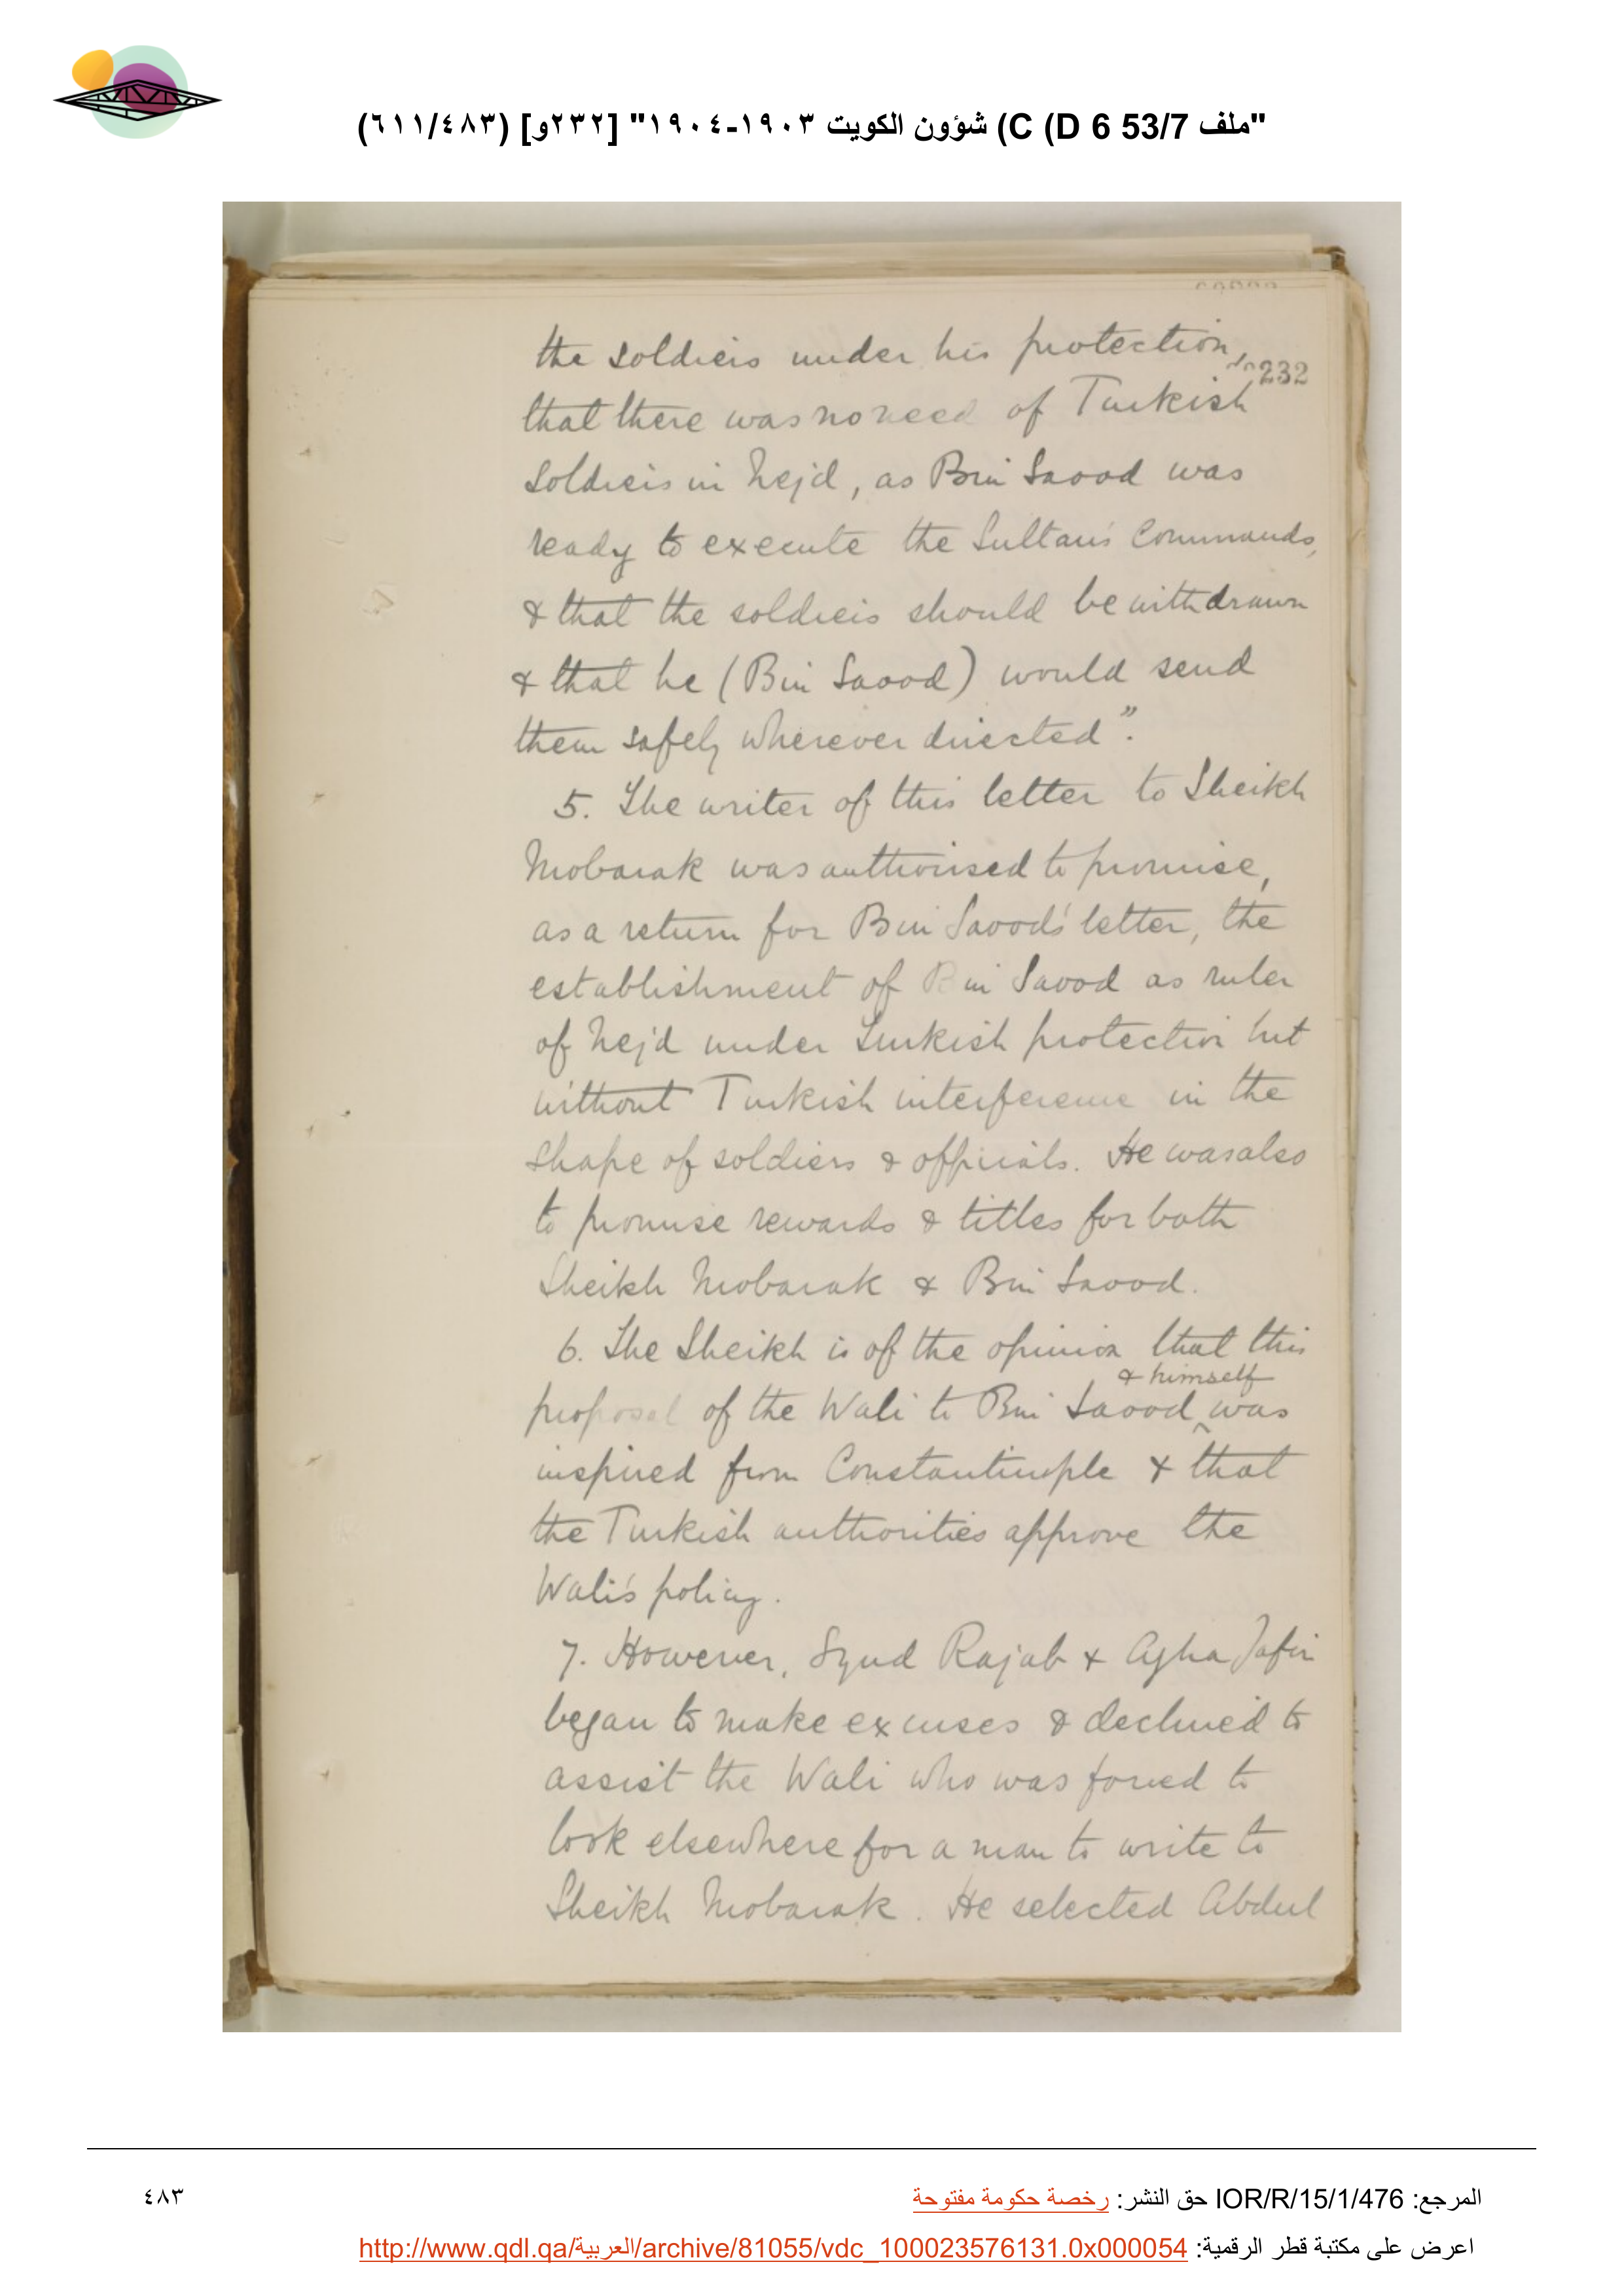 "ملف 53/7 C (D 6) شؤون الكويت ١٩٠٣-١٩٠٤" [٢٣٢و] (٦١١/٤٨٣)
the soldiers under his protection,
232
that there was no need of Turkish
soldiers in Nejd, as Bin Saood was
ready to execute the Sultan's Commands,
& that the soldiers should be withdrawn
& that he (Bin Saood) would send
them safely wherever directed".
5. The writer of this letter to Sheikh
Mobarak was authorised to promise,
as a return for Bin Saood's letter, the
establishment of Bin Saood as ruler
of Nejd under Turkish protection but
without Turkish interference in the
shape of soldiers & officials. He was also
to promise rewards & titles for both
Sheikh Mobarak & Bin Saood.
6. The Sheikh is of the opinion that this
& himself
proposal of the Wali to Bin Saood ^ was
inspired from Constantinople & that
the Turkish authorities approve the
Wali's policy.
7. However, Syud Rajab & Agha Jafir
began to make excuses & declined to
assist the Wali who was forced to
look elsewhere for a man to write to
Sheikh Mobarak. He selected Abdul
المرجع: IOR/R/15/1/476 حق النشر: رخصة حكومة مفتوحة
٤٨٣
اعرض على مكتبة قطر الرقمية: http://www.qdl.qa/العربية/archive/81055/vdc_100023576131.0x000054